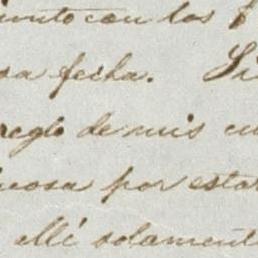 iento con los
sa fecha. Si
reglo de mis cu
cosa por estar
allí solament